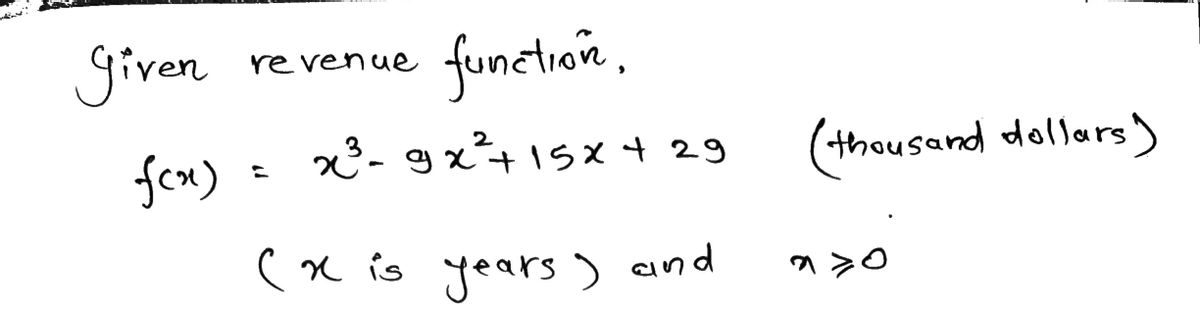 Given revenue function,
f(x) = x³ - 9x² + 15x + 29 (thousand dollars)
(x is years) and x ⩾ 0